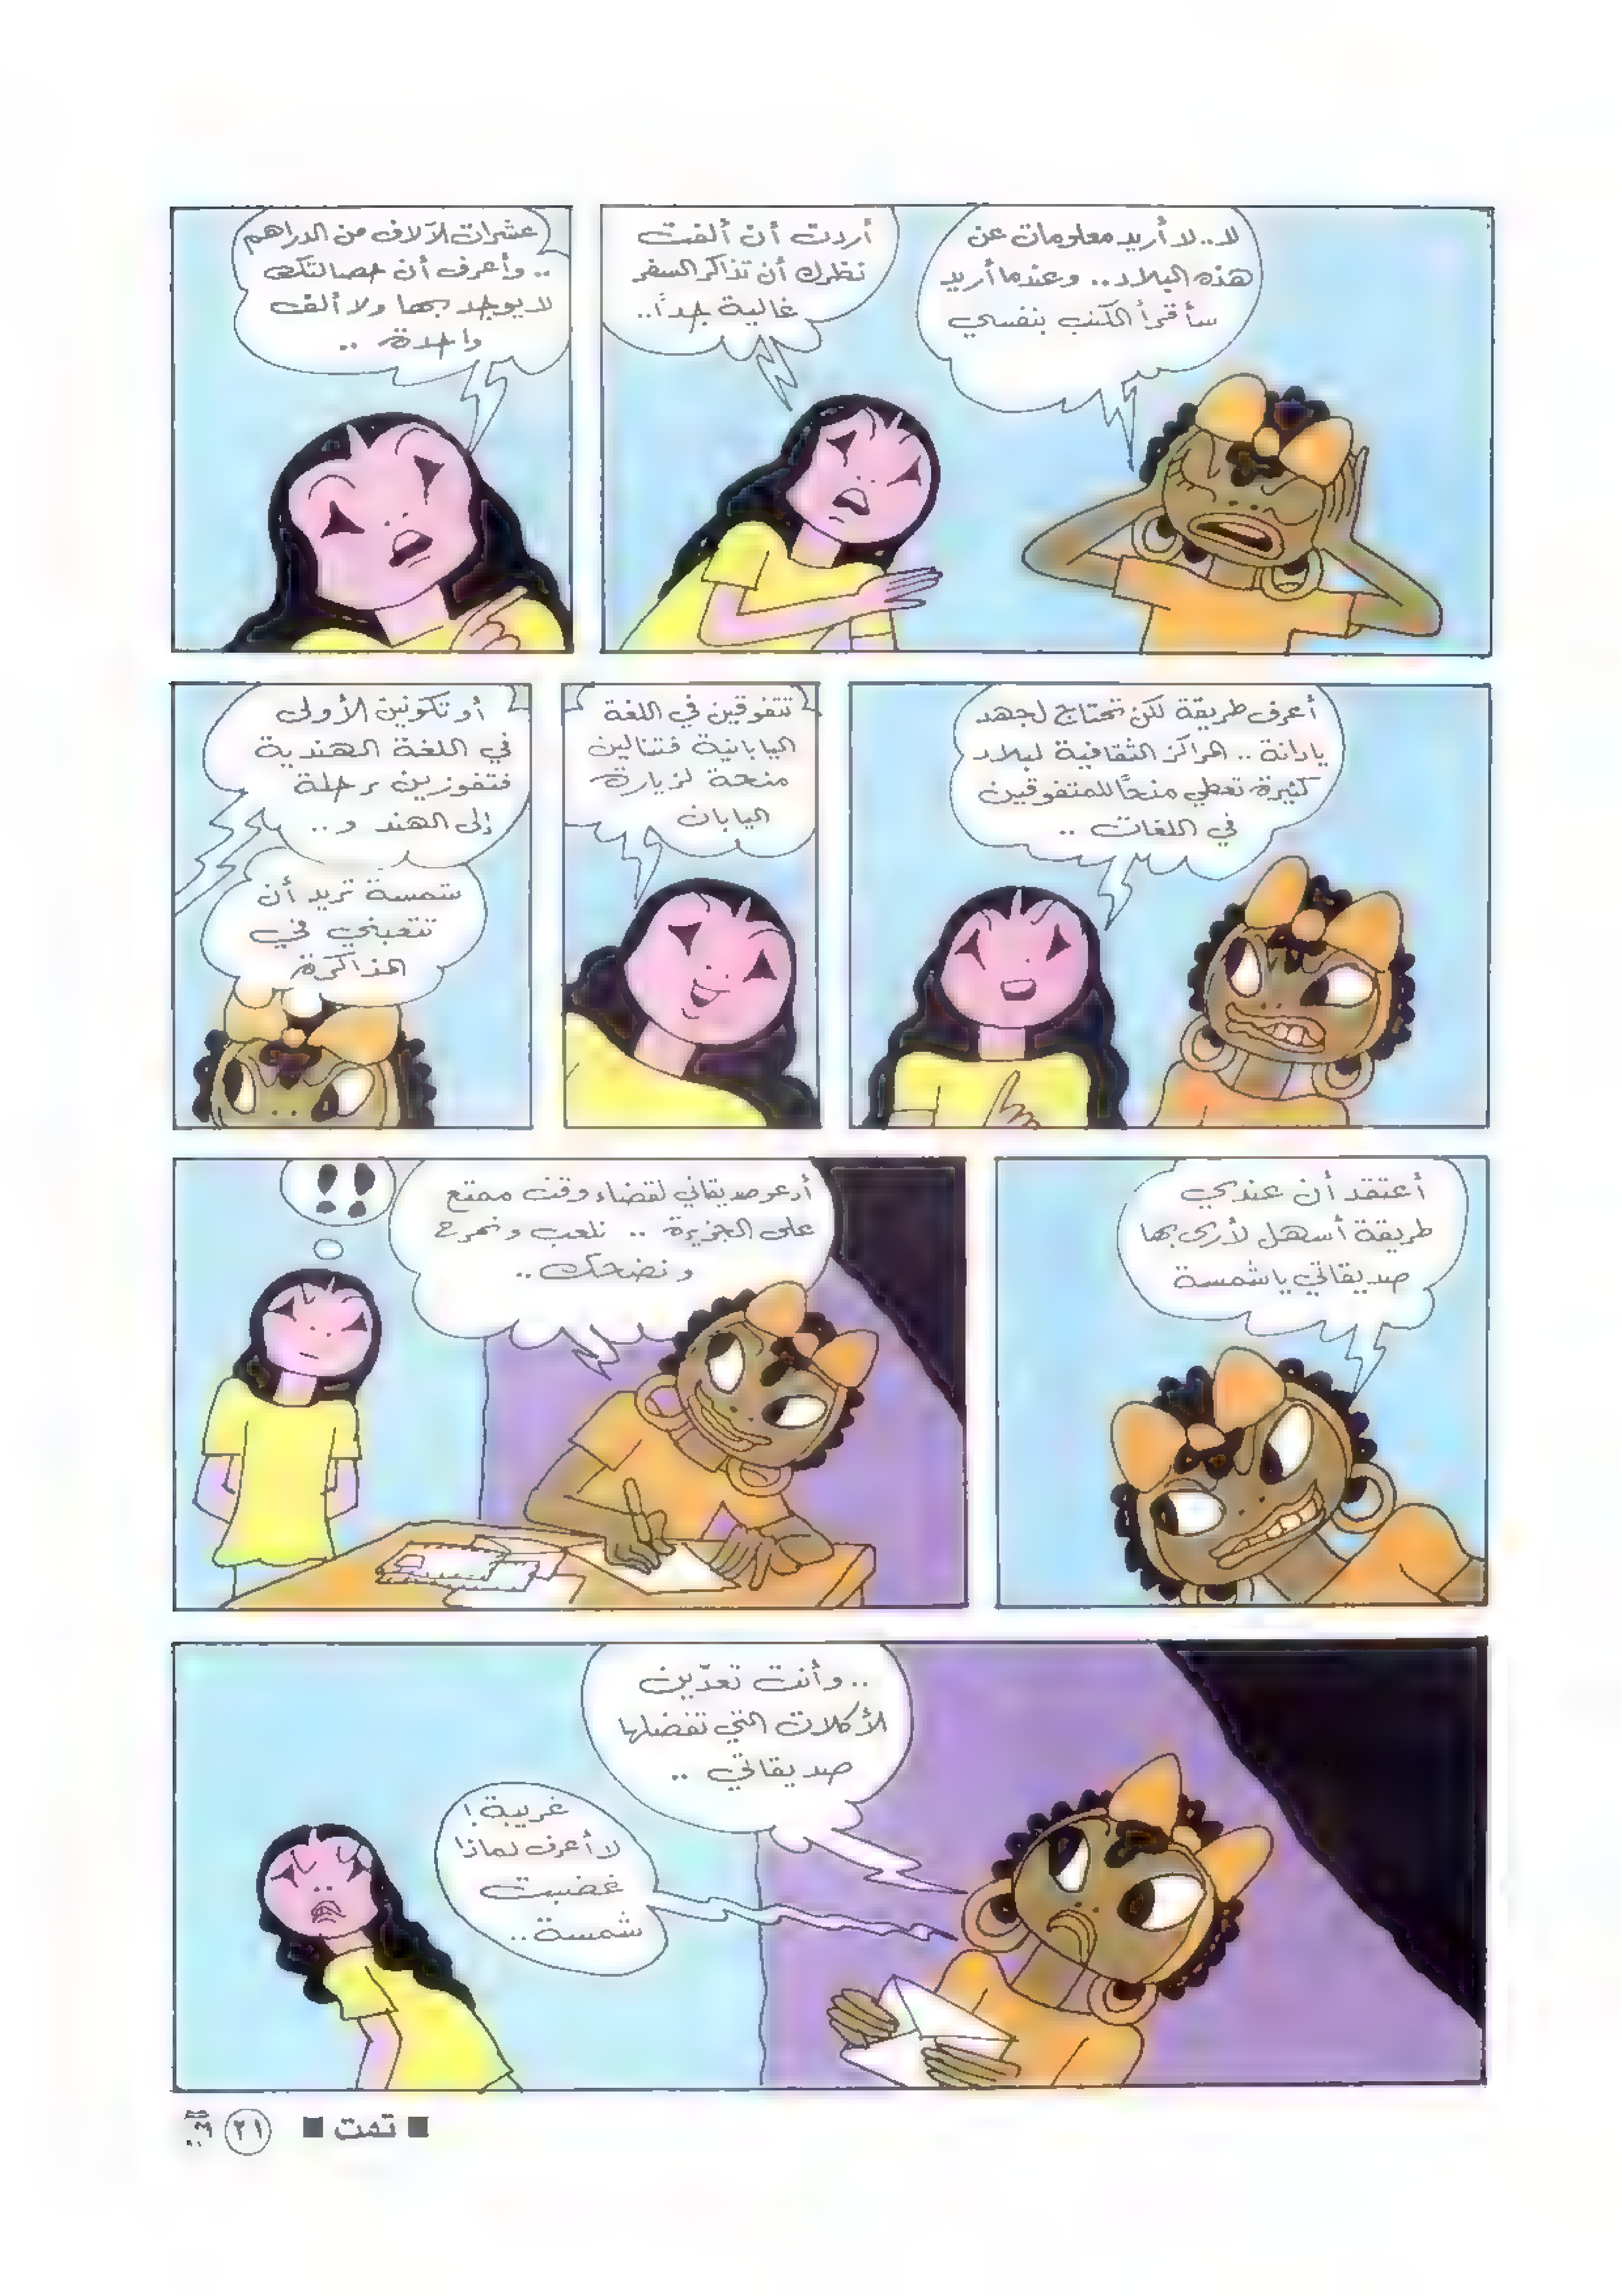 لا.. لا أريد معلومات عن
هذه البلاد.. وعندما أريد
سأقرأ الكتب بنفسي
أردت أن ألفت
نظرك أن تذاكر السفر
غالية جداً..
عشرات الآلاف من الدراهم
.. وأعرف أن حصالتك
لا يوجد بها ولا ألف
واحدة ..
أعرف طريقة لكن تحتاج لجهد
يا دانة .. المراكز الثقافية لبلاد
كثيرة تعطي منحاً للمتفوقين
في اللغات ..
تتفوقين في اللغة
اليابانية فتنالين
منحة لزيارة
اليابان
أو تكونين الأولى
في اللغة الهندية
فتفوزين برحلة
إلى الهند و..
شمسة تريد أن
تتعبني في
المذاكرة
أعتقد أن عندي
طريقة أسهل لأرى بها
صديقاتي يا شمسة
أدعو صديقاتي لقضاء وقت ممتع
على الجزيرة .. نلعب ونمرح
ونضحك ..
!!
.. وأنت تعدّين
الأكلات التي تفضلها
صديقاتي ..
غريبة !
لا أعرف لماذا
غضبت
شمسة ..
■ تمت ■
٢١